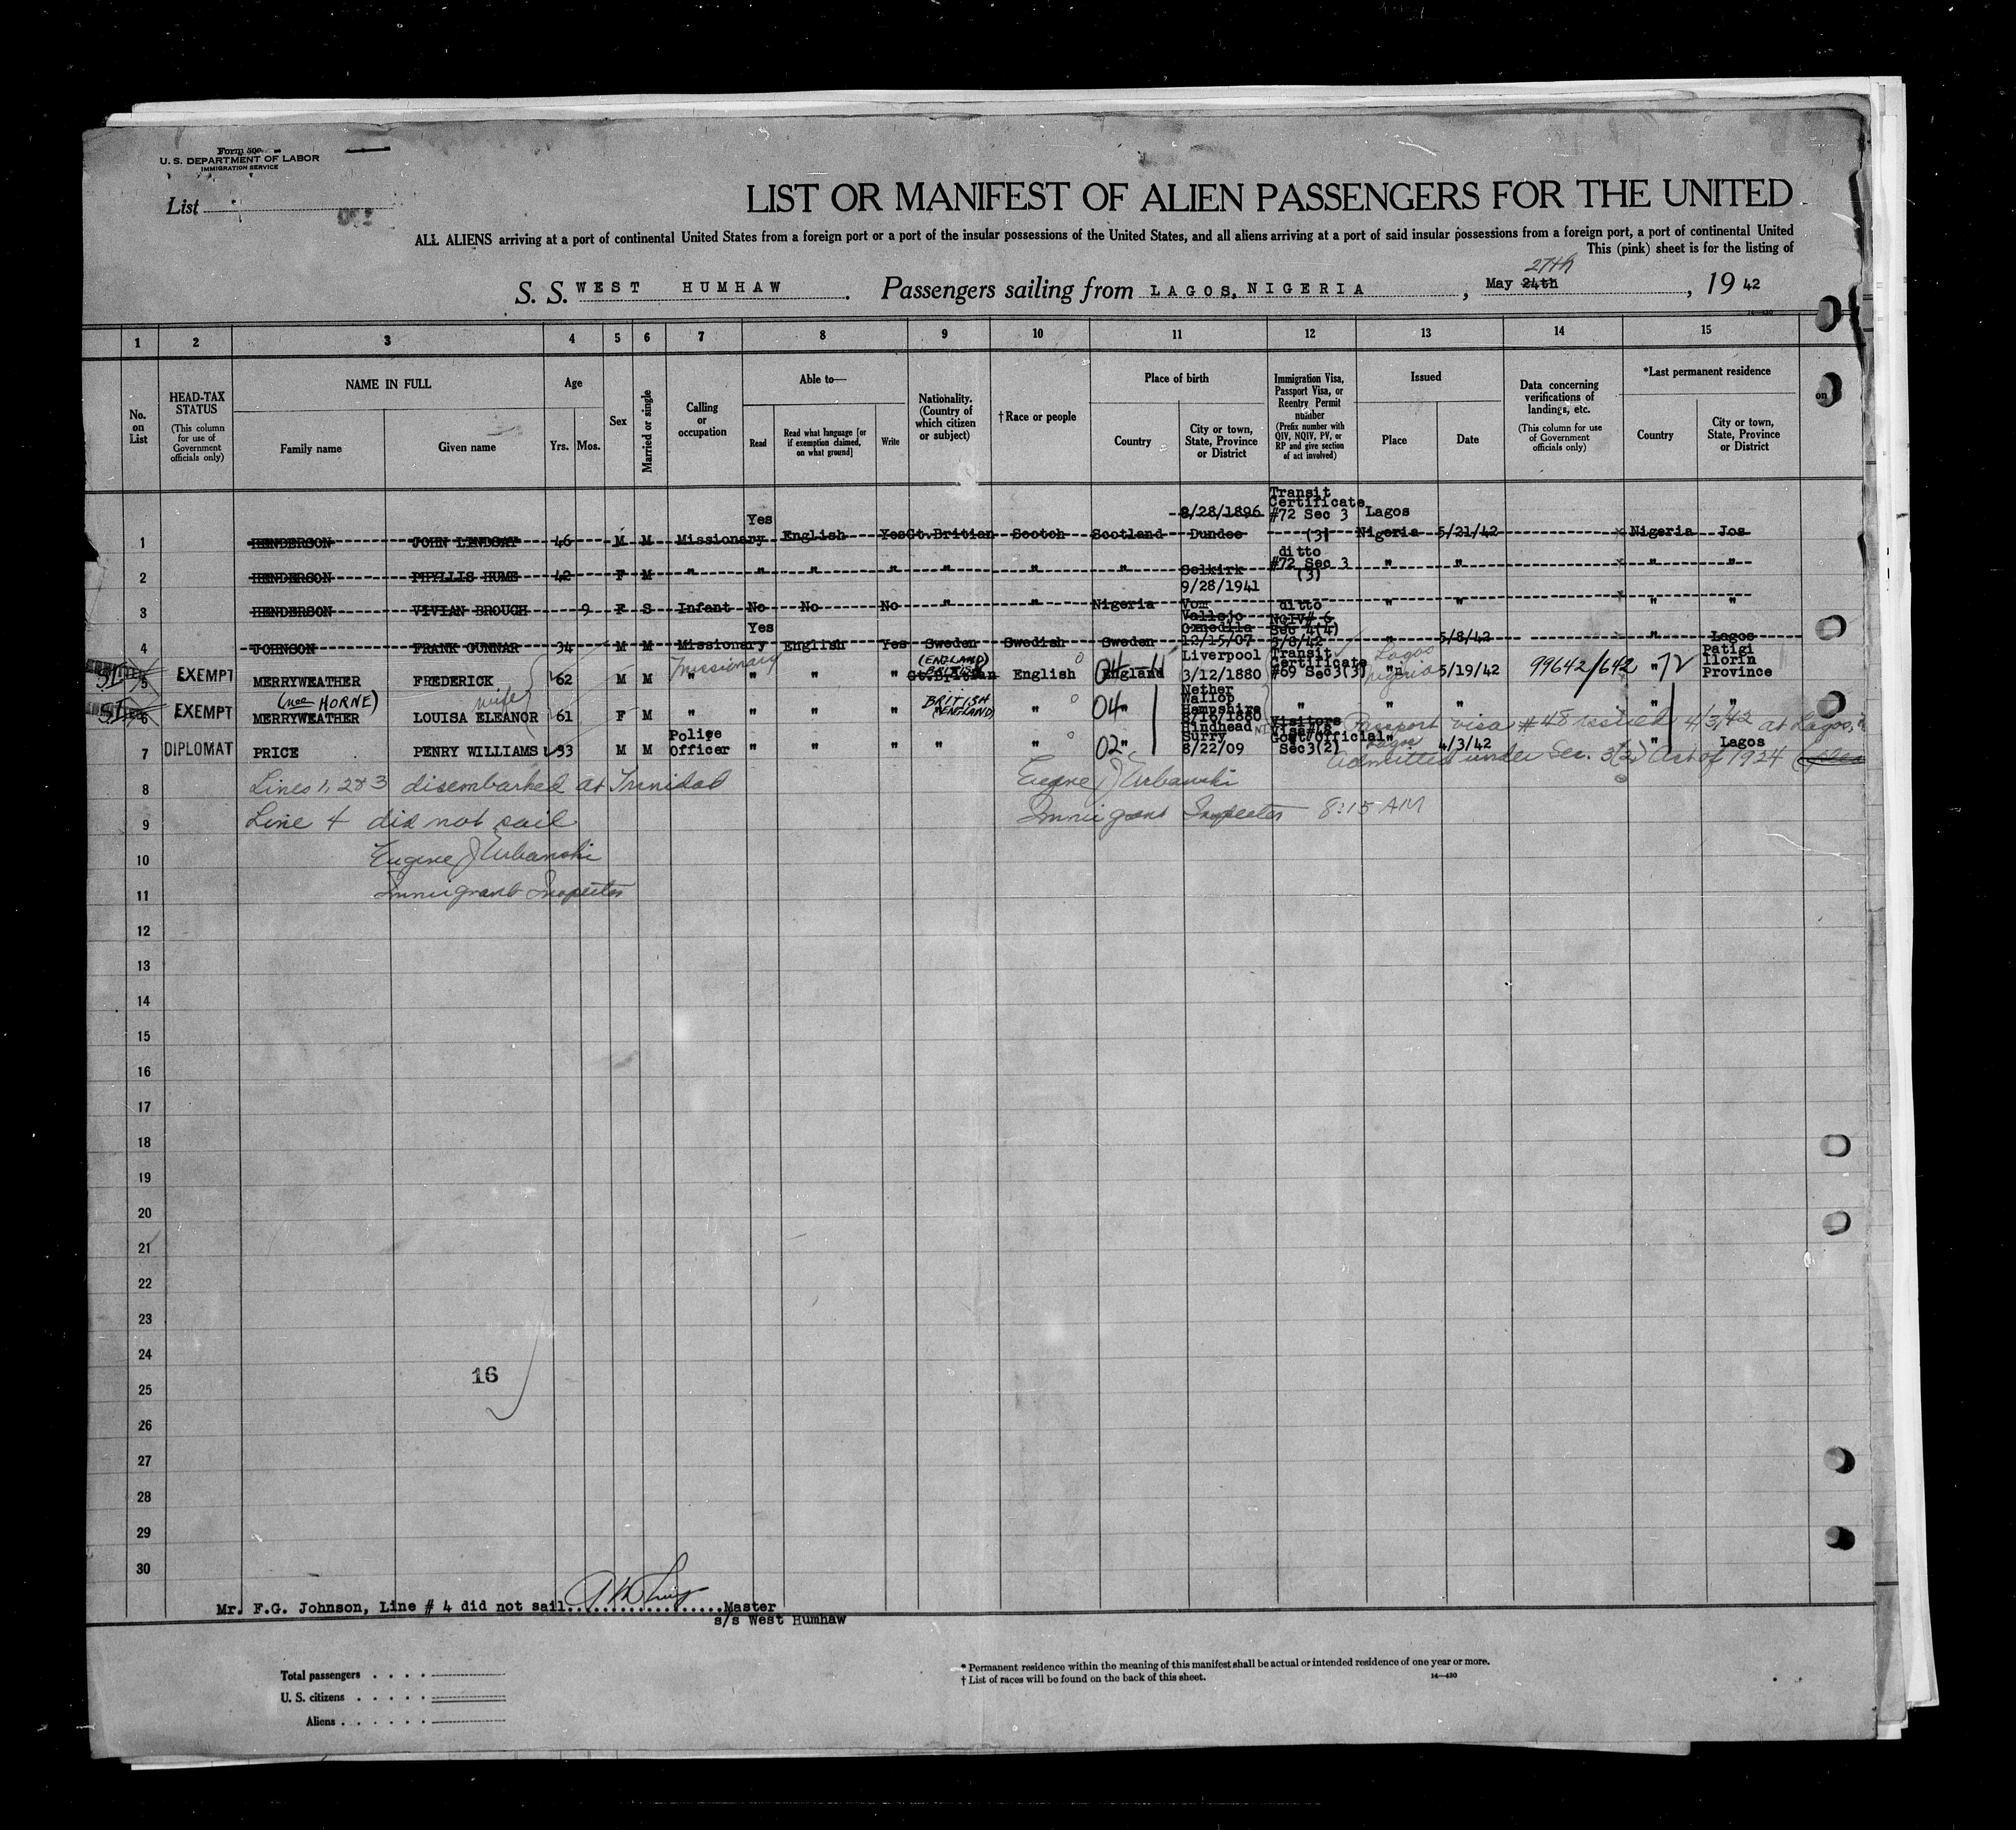 Form 500
U. S. DEPARTMENT OF LABOR
IMMIGRATION SERVICE
List
LIST OR MANIFEST OF ALIEN PASSENGERS FOR THE UNITED
ALL ALIENS arriving at a port of continental United States from a foreign port or a port of the insular possessions of the United States, and all aliens arriving at a port of said insular possessions from a foreign port, a port of continental United
This (pink) sheet is for the listing of
27th
S. S. WEST HUMHAW. Passengers sailing from LAGOS, NIGERIA, May 24th, 19 42
1 2 3 4 5 6 7 8 9 10 11 12 13 14 15
No. on List
HEAD-TAX STATUS (This column for use of Government officials only)
NAME IN FULL
Family name Given name
Age
Yrs. Mos.
Sex
Married or single
Calling or occupation
Able to—
Read Read what language [or if exemption claimed, on what ground] Write
Nationality. (Country of which citizen or subject)
† Race or people
Place of birth
Country City or town, State, Province or District
Immigration Visa, Passport Visa, or Reentry Permit number (Prefix number with QIV, NQIV, PV, or RP and give section of act involved)
Issued
Place Date
Data concerning verifications of landings, etc. (This column for use of Government officials only)
*Last permanent residence
Country City or town, State, Province or District
1 HENDERSON JOHN LINDSAY 46 M M Missionary Yes English Yes Gt.Britian Scotch Scotland 8/28/1896 Dundee Transit Certificate #72 Sec 3 (3) Lagos Nigeria 5/21/42 x Nigeria Jos
2 HENDERSON PHYLLIS HUME 42 F M " " " " " " " Selkirk ditto #72 Sec 3 (3) " " x " "
3 HENDERSON VIVIAN BROUGH 9 F S Infant No No No " " Nigeria 9/28/1941 Vom ditto " " x " "
4 JOHNSON FRANK GUNNAR 34 M M Missionary Yes English Yes Sweden Swedish Sweden Vallsjo 12/15/07 NQIV# 6 Sec 4(4) 5/8/42 " 5/8/42 " Lagos
5 EXEMPT MERRYWEATHER FREDERICK 62 M M Missionary " " " " (ENGLAND) BRITISH Gt.Britian English 04 England Liverpool 3/12/1880 Transit Certificate #69 Sec3(3) Lagos Nigeria " 5/19/42 99642/642 " 72 Patigi Ilorin Province
6 EXEMPT (nee HORNE) MERRYWEATHER wife LOUISA ELEANOR 61 F M " " " " BRITISH (ENGLAND) " 04 " Nether Wallop Hampshire 8/16/1880 " " " " "
7 DIPLOMAT PRICE PENRY WILLIAMS 33 M M Police Officer " " " " " 02 " Hindhead Surry 8/22/09 Visitors Visa#48 Govt Official Sec3(2) " Lagos 4/3/42 " Lagos
Passport visa #48 issued 4/3/42 at Lagos,
Admitted under Sec. 3(2) Act of 1924
8 Lines 1, 2 & 3 disembarked at Trinidad Eugene J Urbanski
9 Line 4 did not sail Immigrant Inspector 8:15 AM
10 Eugene J Urbanski
11 Immigrant Inspector
12
13
14
15
16
17
18
19
20
21
22
23
24
16
25
26
27
28
29
30
Mr. F.G. Johnson, Line # 4 did not sail..................Master
s/s West Humhaw
Total passengers . . . .
U. S. citizens . . . . .
Aliens . . . . . .
* Permanent residence within the meaning of this manifest shall be actual or intended residence of one year or more.
† List of races will be found on the back of this sheet.
14—430